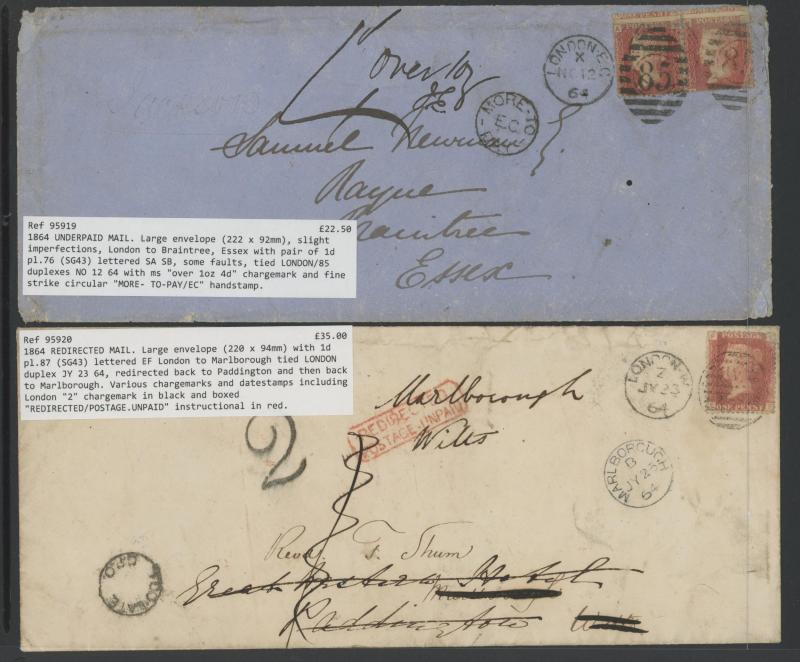 over 1oz
LONDON·E.C
X
NO 12
64
85
8
MORE-TO-PAY
EC
Samuel Newman
Rayne
Braintree
Essex
Ref 95919 £22.50
1864 UNDERPAID MAIL. Large envelope (222 x 92mm), slight
imperfections, London to Braintree, Essex with pair of 1d
pl.76 (SG43) lettered SA SB, some faults, tied LONDON/85
duplexes NO 12 64 with ms "over 1oz 4d" chargemark and fine
strike circular "MORE- TO-PAY/EC" handstamp.
Ref 95920 £35.00
1864 REDIRECTED MAIL. Large envelope (220 x 94mm) with 1d
pl.87 (SG43) lettered EF London to Marlborough tied LONDON
duplex JY 23 64, redirected back to Paddington and then back
to Marlborough. Various chargemarks and datestamps including
London "2" chargemark in black and boxed
"REDIRECTED/POSTAGE.UNPAID" instructional in red.
POSTAGE
ONE PENNY
LONDON·W
Z
JY 23
64
Marlborough
REDIRECTED
POSTAGE.UNPAID
Wilts
2
MARLBOROUGH
B
JY 25
64
Revd. T. Thum
Great Western Hotel
Paddington
TOO·LATE
G.P.O